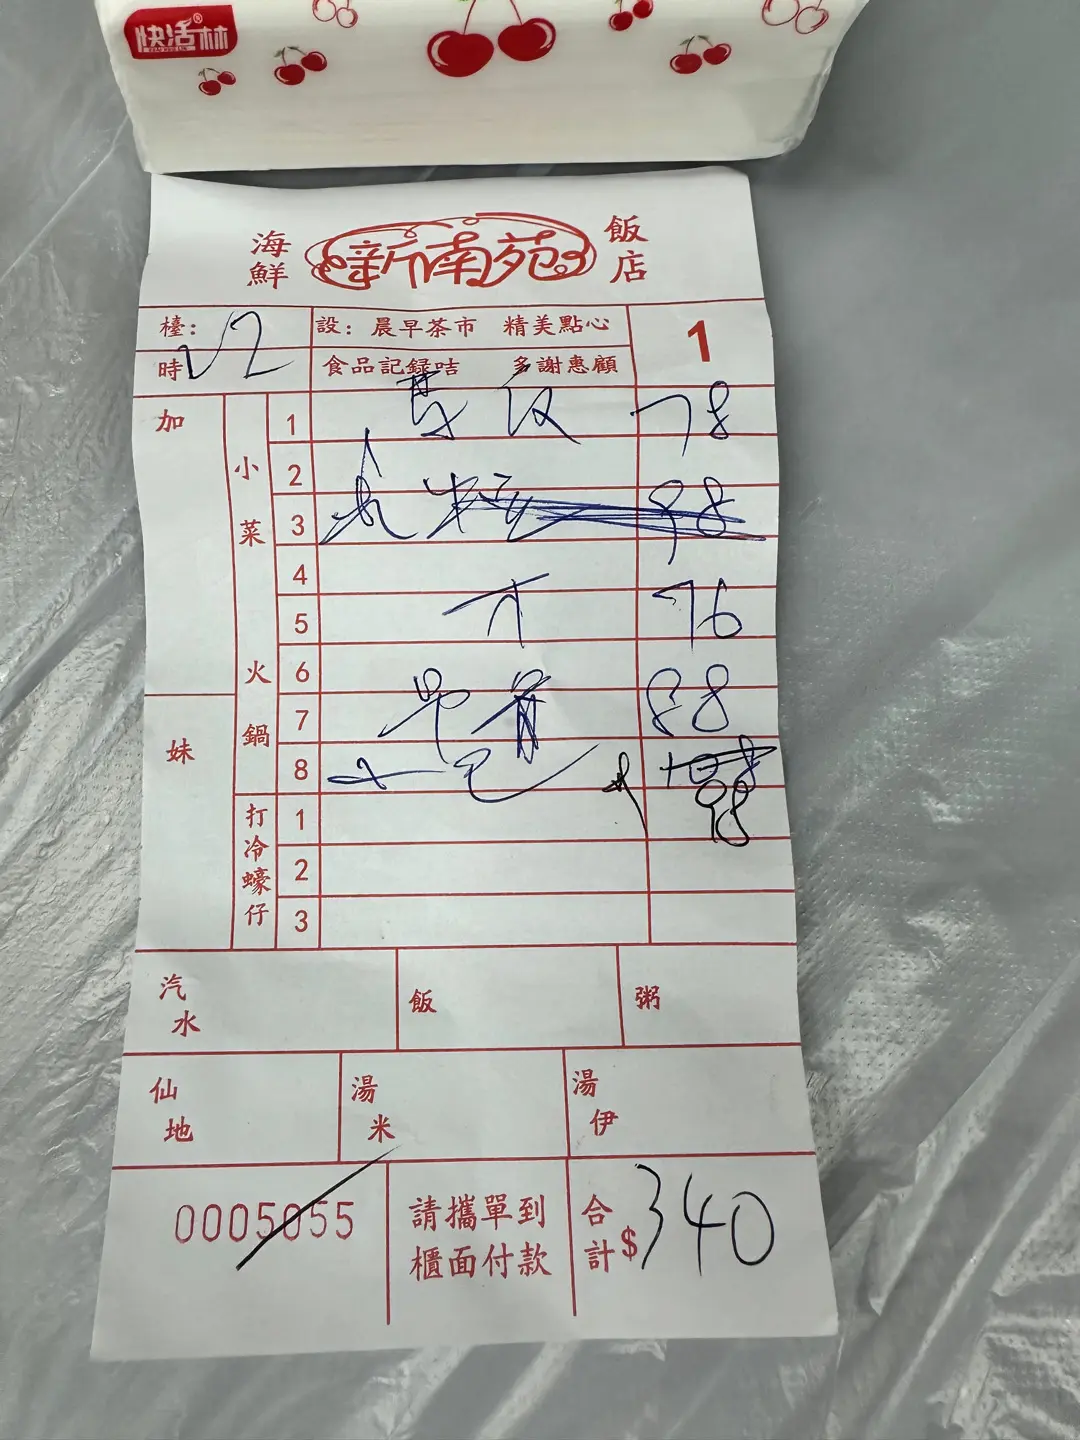 快活林
海鮮 新南苑 飯店
檯: V2
設: 晨早茶市 精美點心
1
時
食品記録咭 多謝惠顧
加
小菜
火鍋
1 78
2
3 98
4
5 76
6
7 88
8
98
妹
打冷蠔仔
1
2
3
汽水
飯
粥
仙地
湯米
湯伊
0005055
請攜單到櫃面付款
合計$ 340